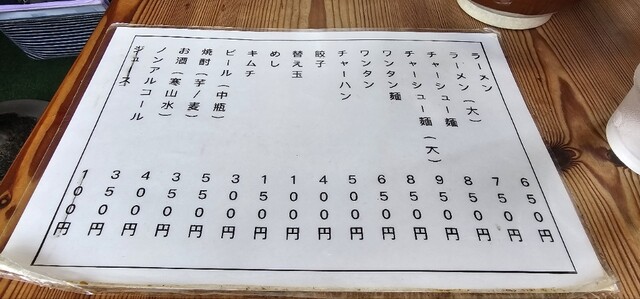 ラーメン 650円
ラーメン（大） 750円
チャーシュー麺 850円
チャーシュー麺（大） 950円
ワンタン麺 850円
ワンタン 650円
チャーハン 500円
餃子 400円
替え玉 100円
めし 150円
キムチ 300円
ビール（中瓶） 550円
焼酎（芋/麦） 350円
お酒（寒山水） 400円
ノンアルコール 350円
ジュース 100円